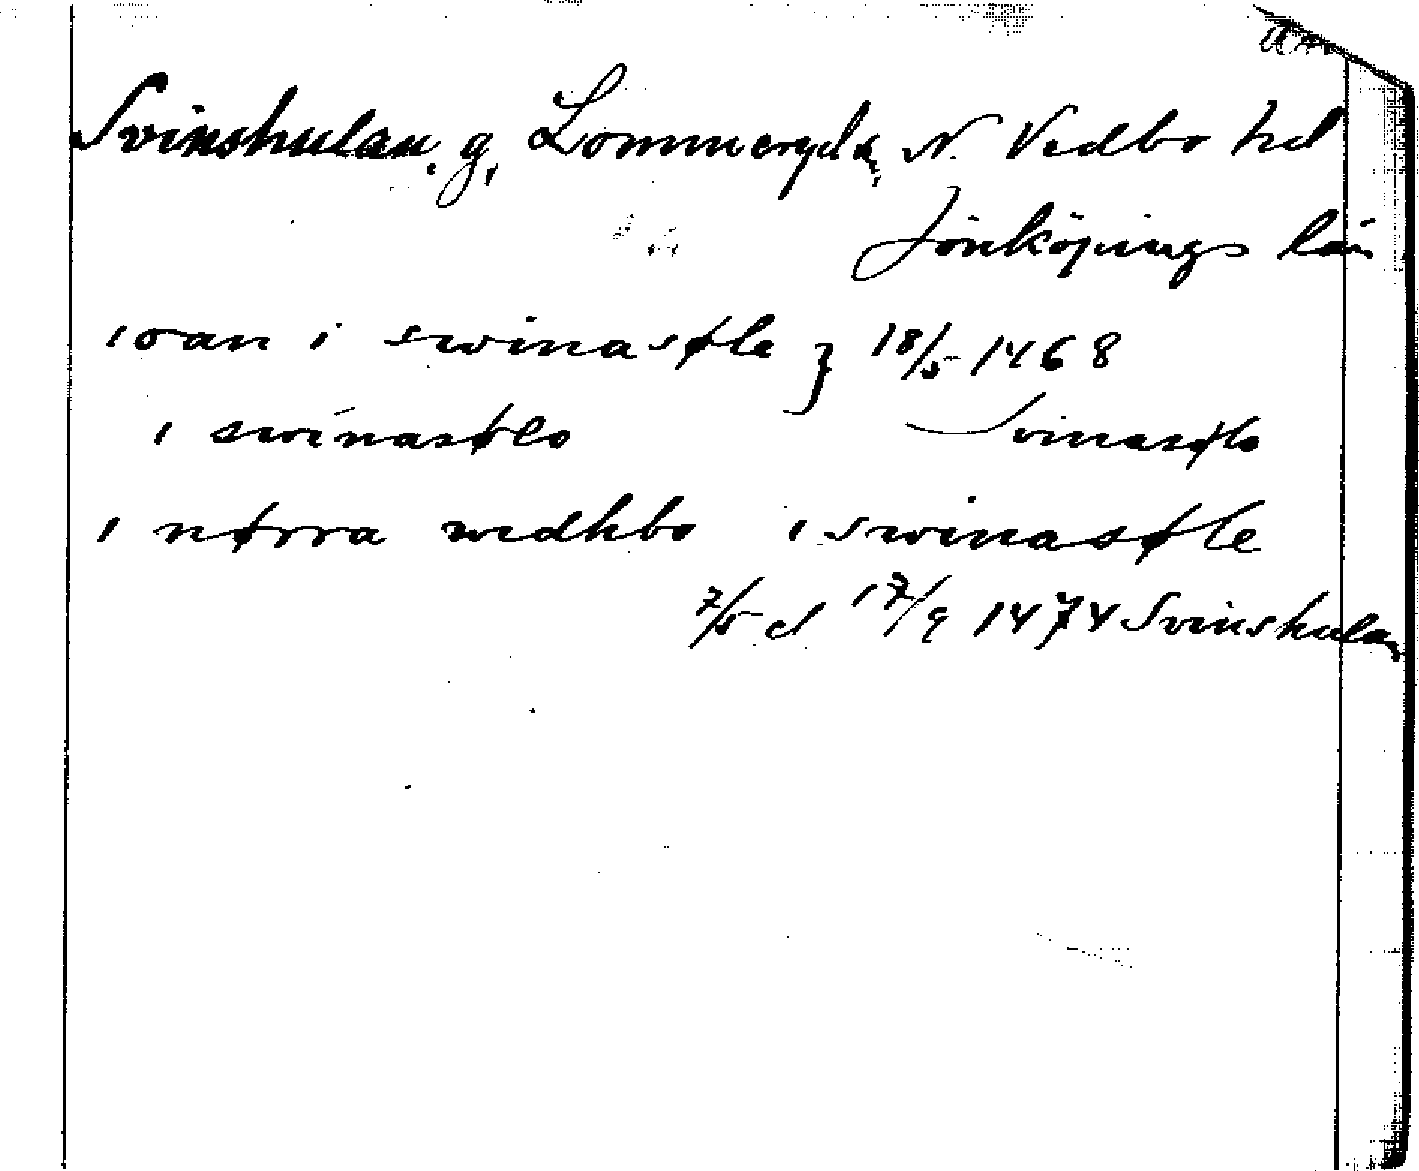 Svinshulan, g, Lommeryds, N. Vedbo hd
Jönköpings län
ioan i swinasøle } 18/5 1468
i swinasølo Svinasølo
i nørra wedhbo i swinasøle
7/5 el 17/9 1474 Svinshulan